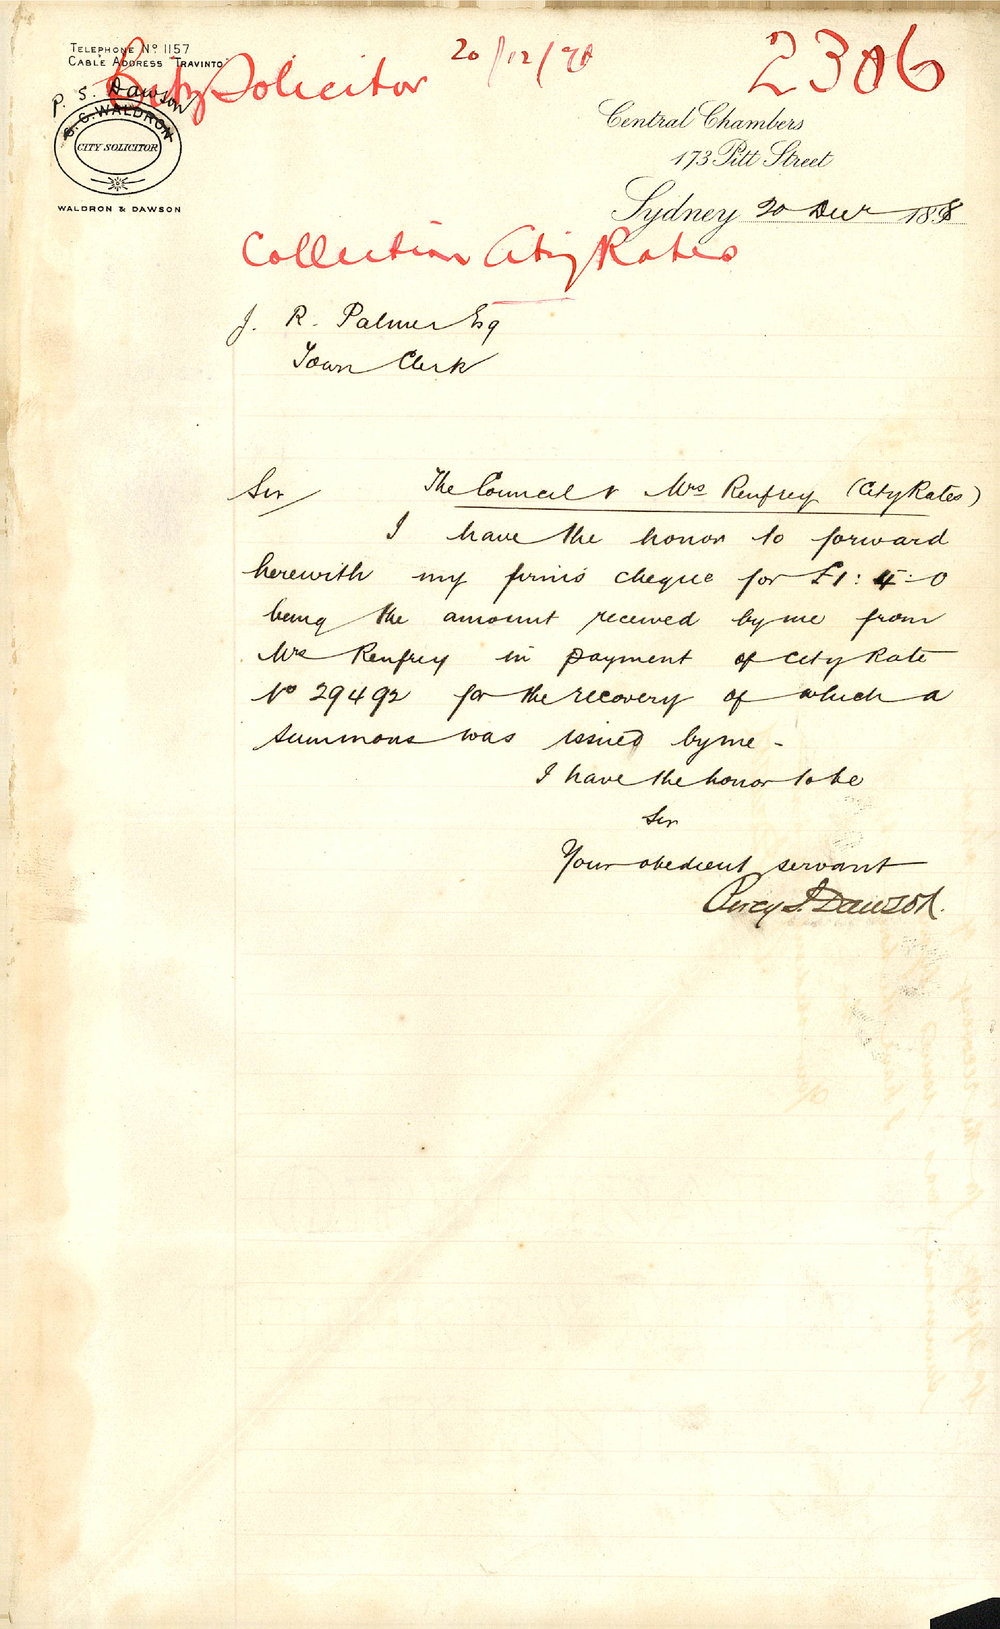 TELEPHONE Nº 1157
CABLE ADDRESS TRAVINTO
City Solicitor
20/12/98
2306
P. S. Dawson
G. C. WALDRON
CITY SOLICITOR
WALDRON & DAWSON
Central Chambers
173 Pitt Street
Sydney 20 Decr 1898
Collection City Rates
J. R. Palmer Esq
Town Clerk
Sir The Council v Mrs Renfrey (City Rates)
I have the honor to forward
herewith my firms cheque for £1:4:0
being the amount received by me from
Mrs Renfrey in payment of City Rate
Nº 29492 for the recovery of which a
summons was issued by me -
I have the honor to be
Sir
Your obedient servant
Percy S. Dawson.